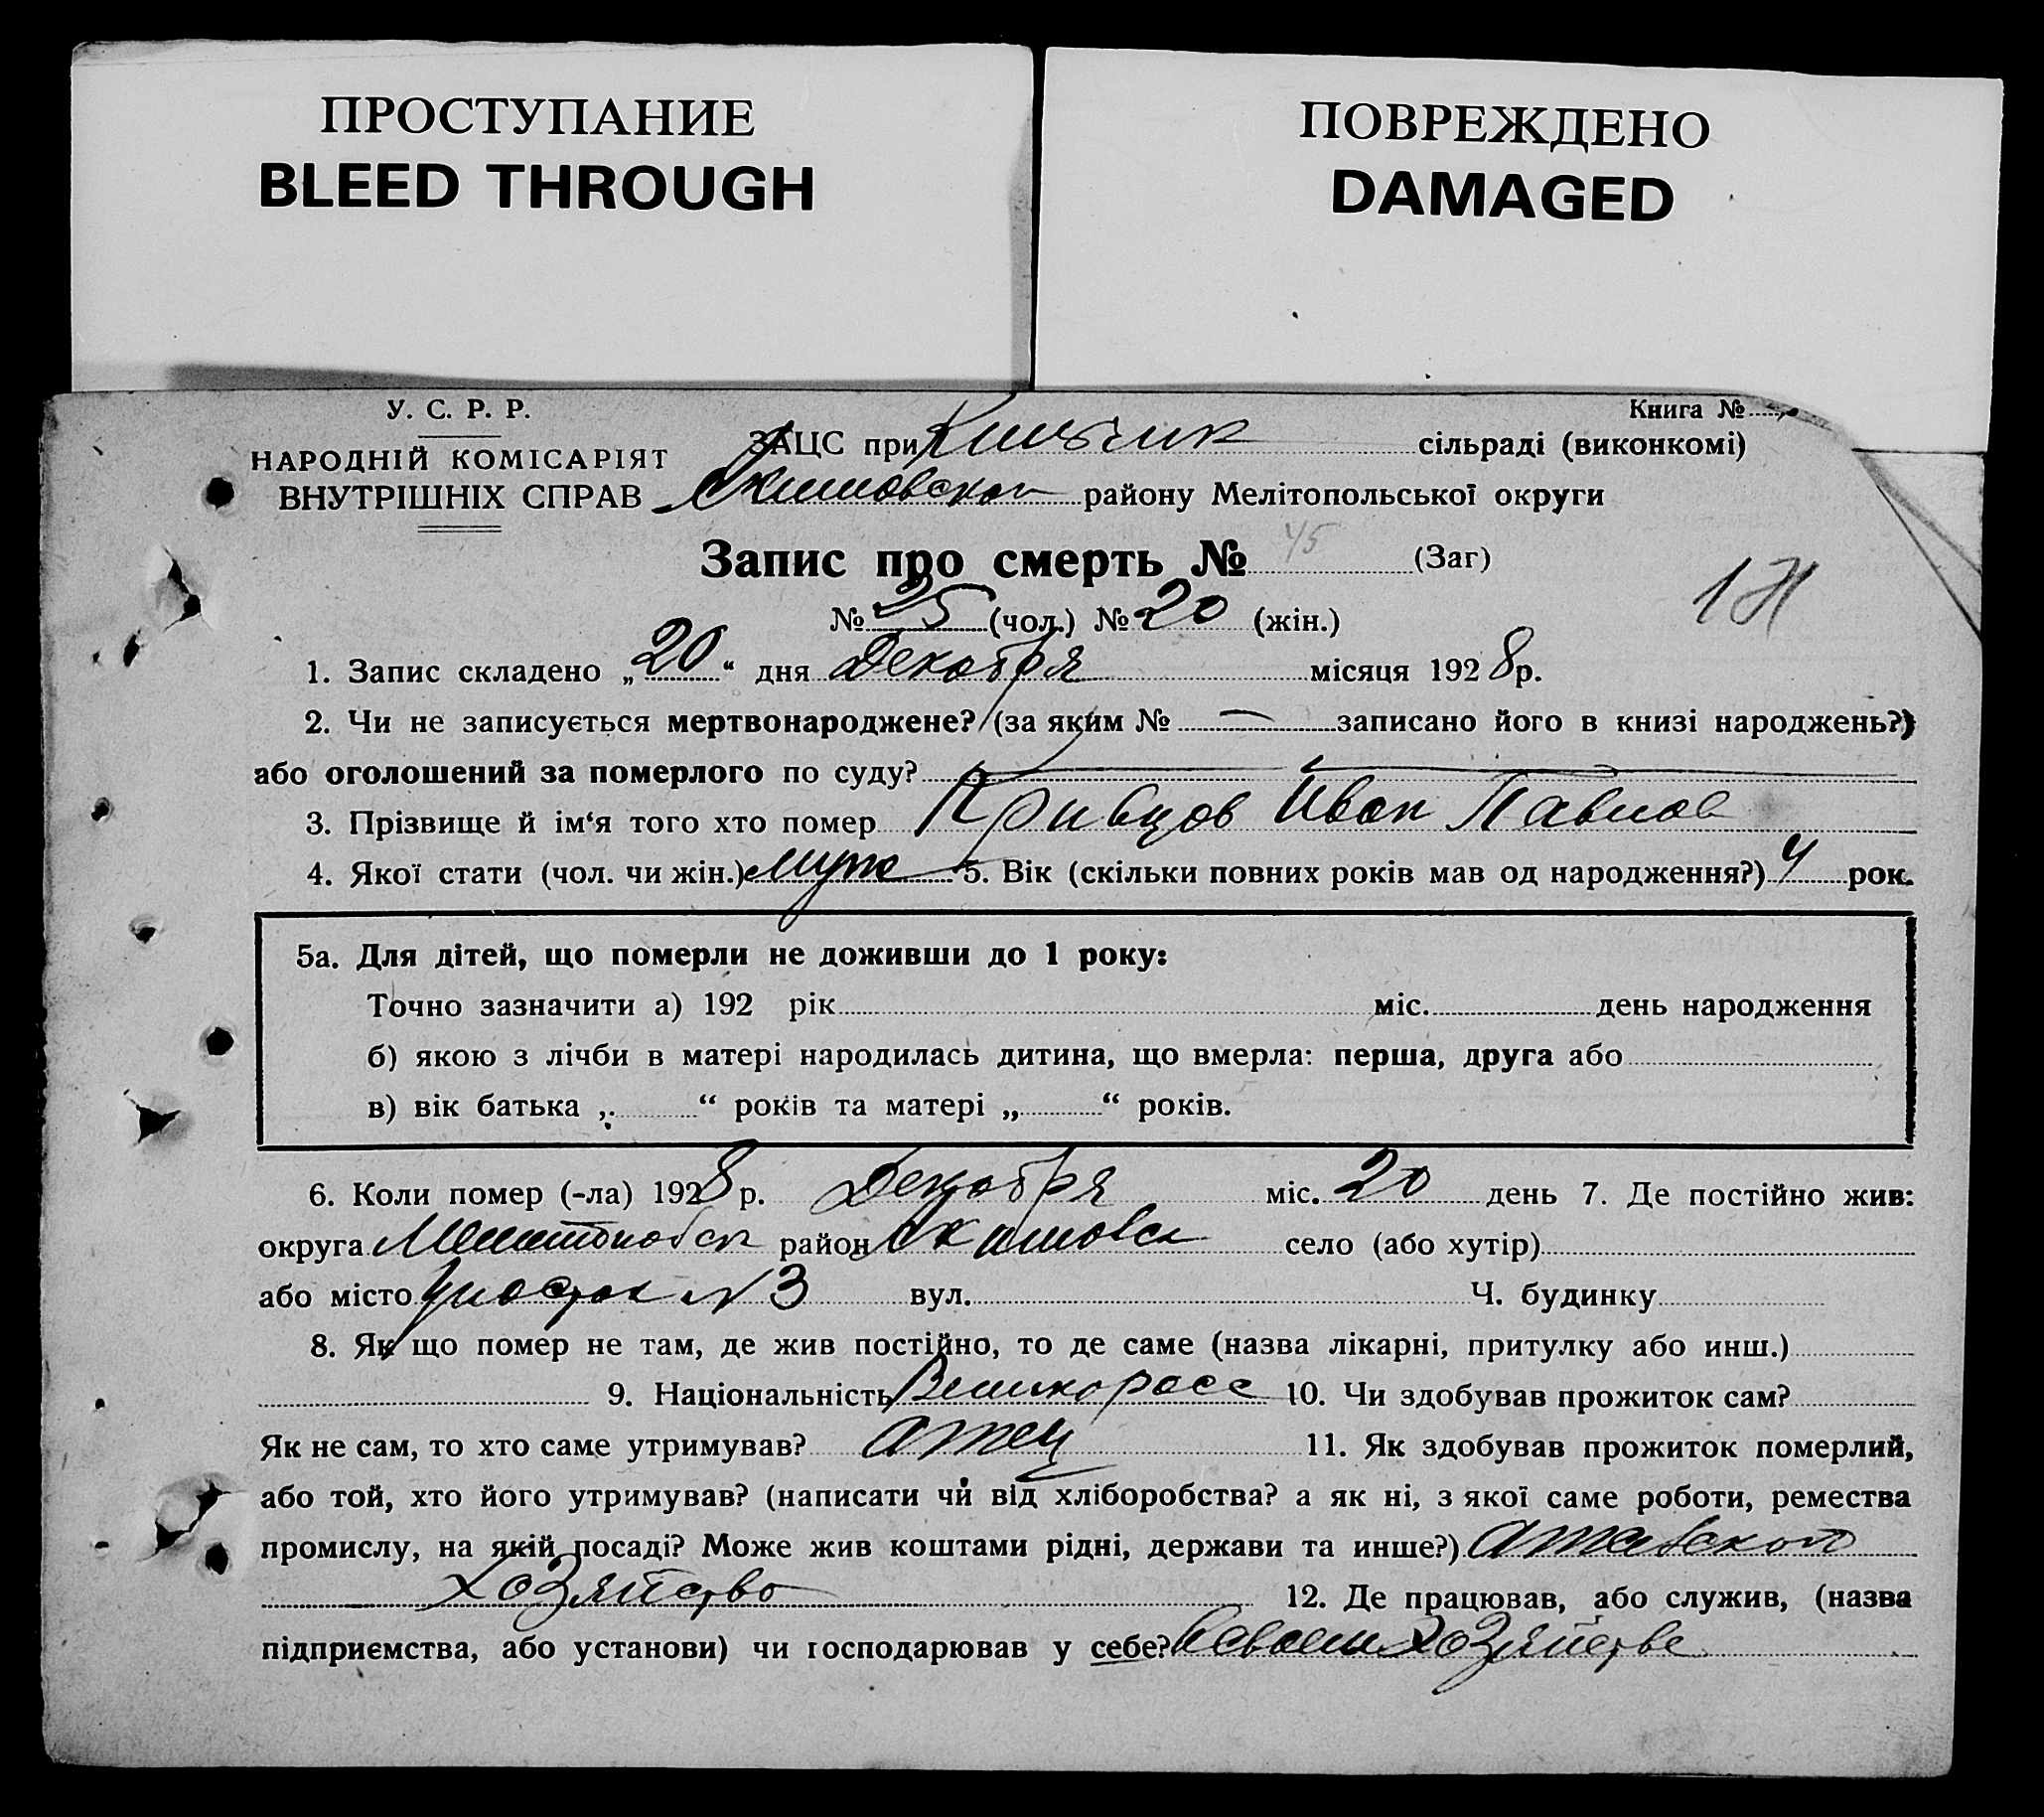 ПРОСТУПАНИЕ
BLEED THROUGH
ПОВРЕЖДЕНО
DAMAGED
У. С. Р. Р.
НАРОДНІЙ КОМІСАРІЯТ
ВНУТРІШНІХ СПРАВ
Книга №
ЗАЦС при сільраді (виконкомі)
району Мелітопольської округи
Запис про смерть № 45 (Заг)
№ 25 (чол.) № 20 (жін.)
1. Запис складено „20“ дня Декабря місяця 1928 р.
2. Чи не записується мертвонароджене? (за яким № — записано його в книзі народжень?)
або оголошений за померлого по суду? —
3. Прізвище й ім‘я того хто помер Кривцов Иван Павлов
4. Якої стати (чол. чи жін.) муж 5. Вік (скільки повних років мав од народження?) 4 рок.
5а. Для дітей, що померли не доживши до 1 року:
Точно зазначити а) 192 рік міс. день народження
б) якою з лічби в матері народилась дитина, що вмерла: перша, друга або
в) вік батька „ “ років та матері „ “ років.
6. Коли помер (-ла) 1928 р. Декабря міс. 20 день 7. Де постійно жив:
округа район Акимовск село (або хутір)
або місто Участок № 3 вул. Ч. будинку
8. Як що помер не там, де жив постійно, то де саме (назва лікарні, притулку або инш.)
9. Національність Великорасс 10. Чи здобував прожиток сам?
Як не сам, то хто саме утримував? атец 11. Як здобував прожиток померлий,
або той, хто його утримував? (написати чи від хліборобства? а як ні, з якої саме роботи, ремества
промислу, на якій посаді? Може жив коштами рідні, держави та инше?)
хозяйство 12. Де працював, або служив, (назва
підприємства, або установи) чи господарював у себе? в своем хозяйстве